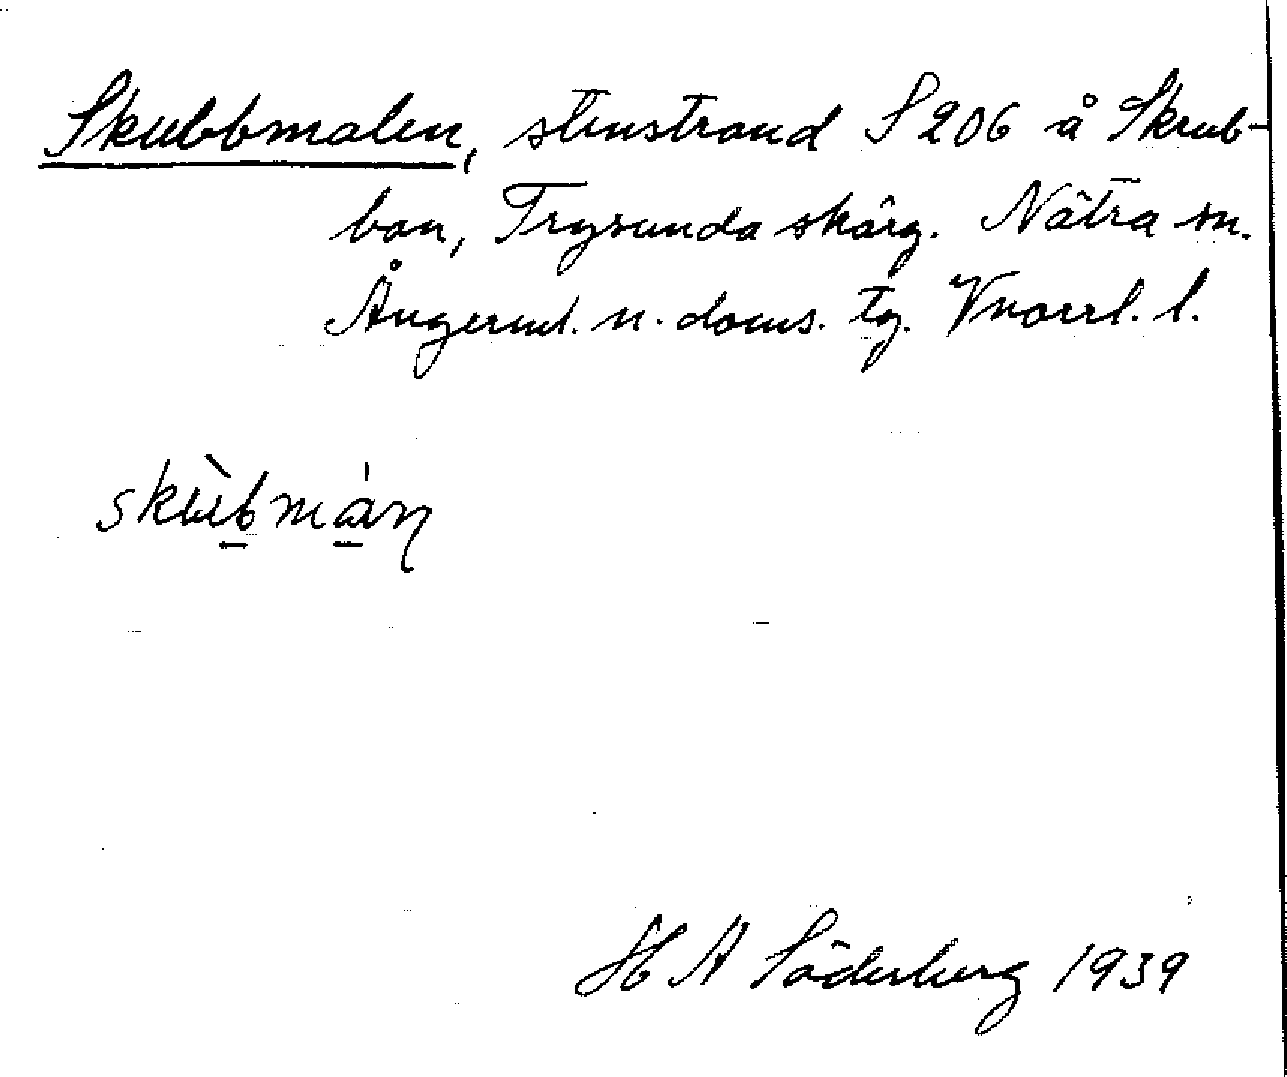 Skubbmalen, stenstrand S 206 å Skrub-
ban, Trysunda skärg. Nätra sn.
Ångerml. n. doms. tg. Vnorrl. l.
skùbmán
H A Söderberg 1939